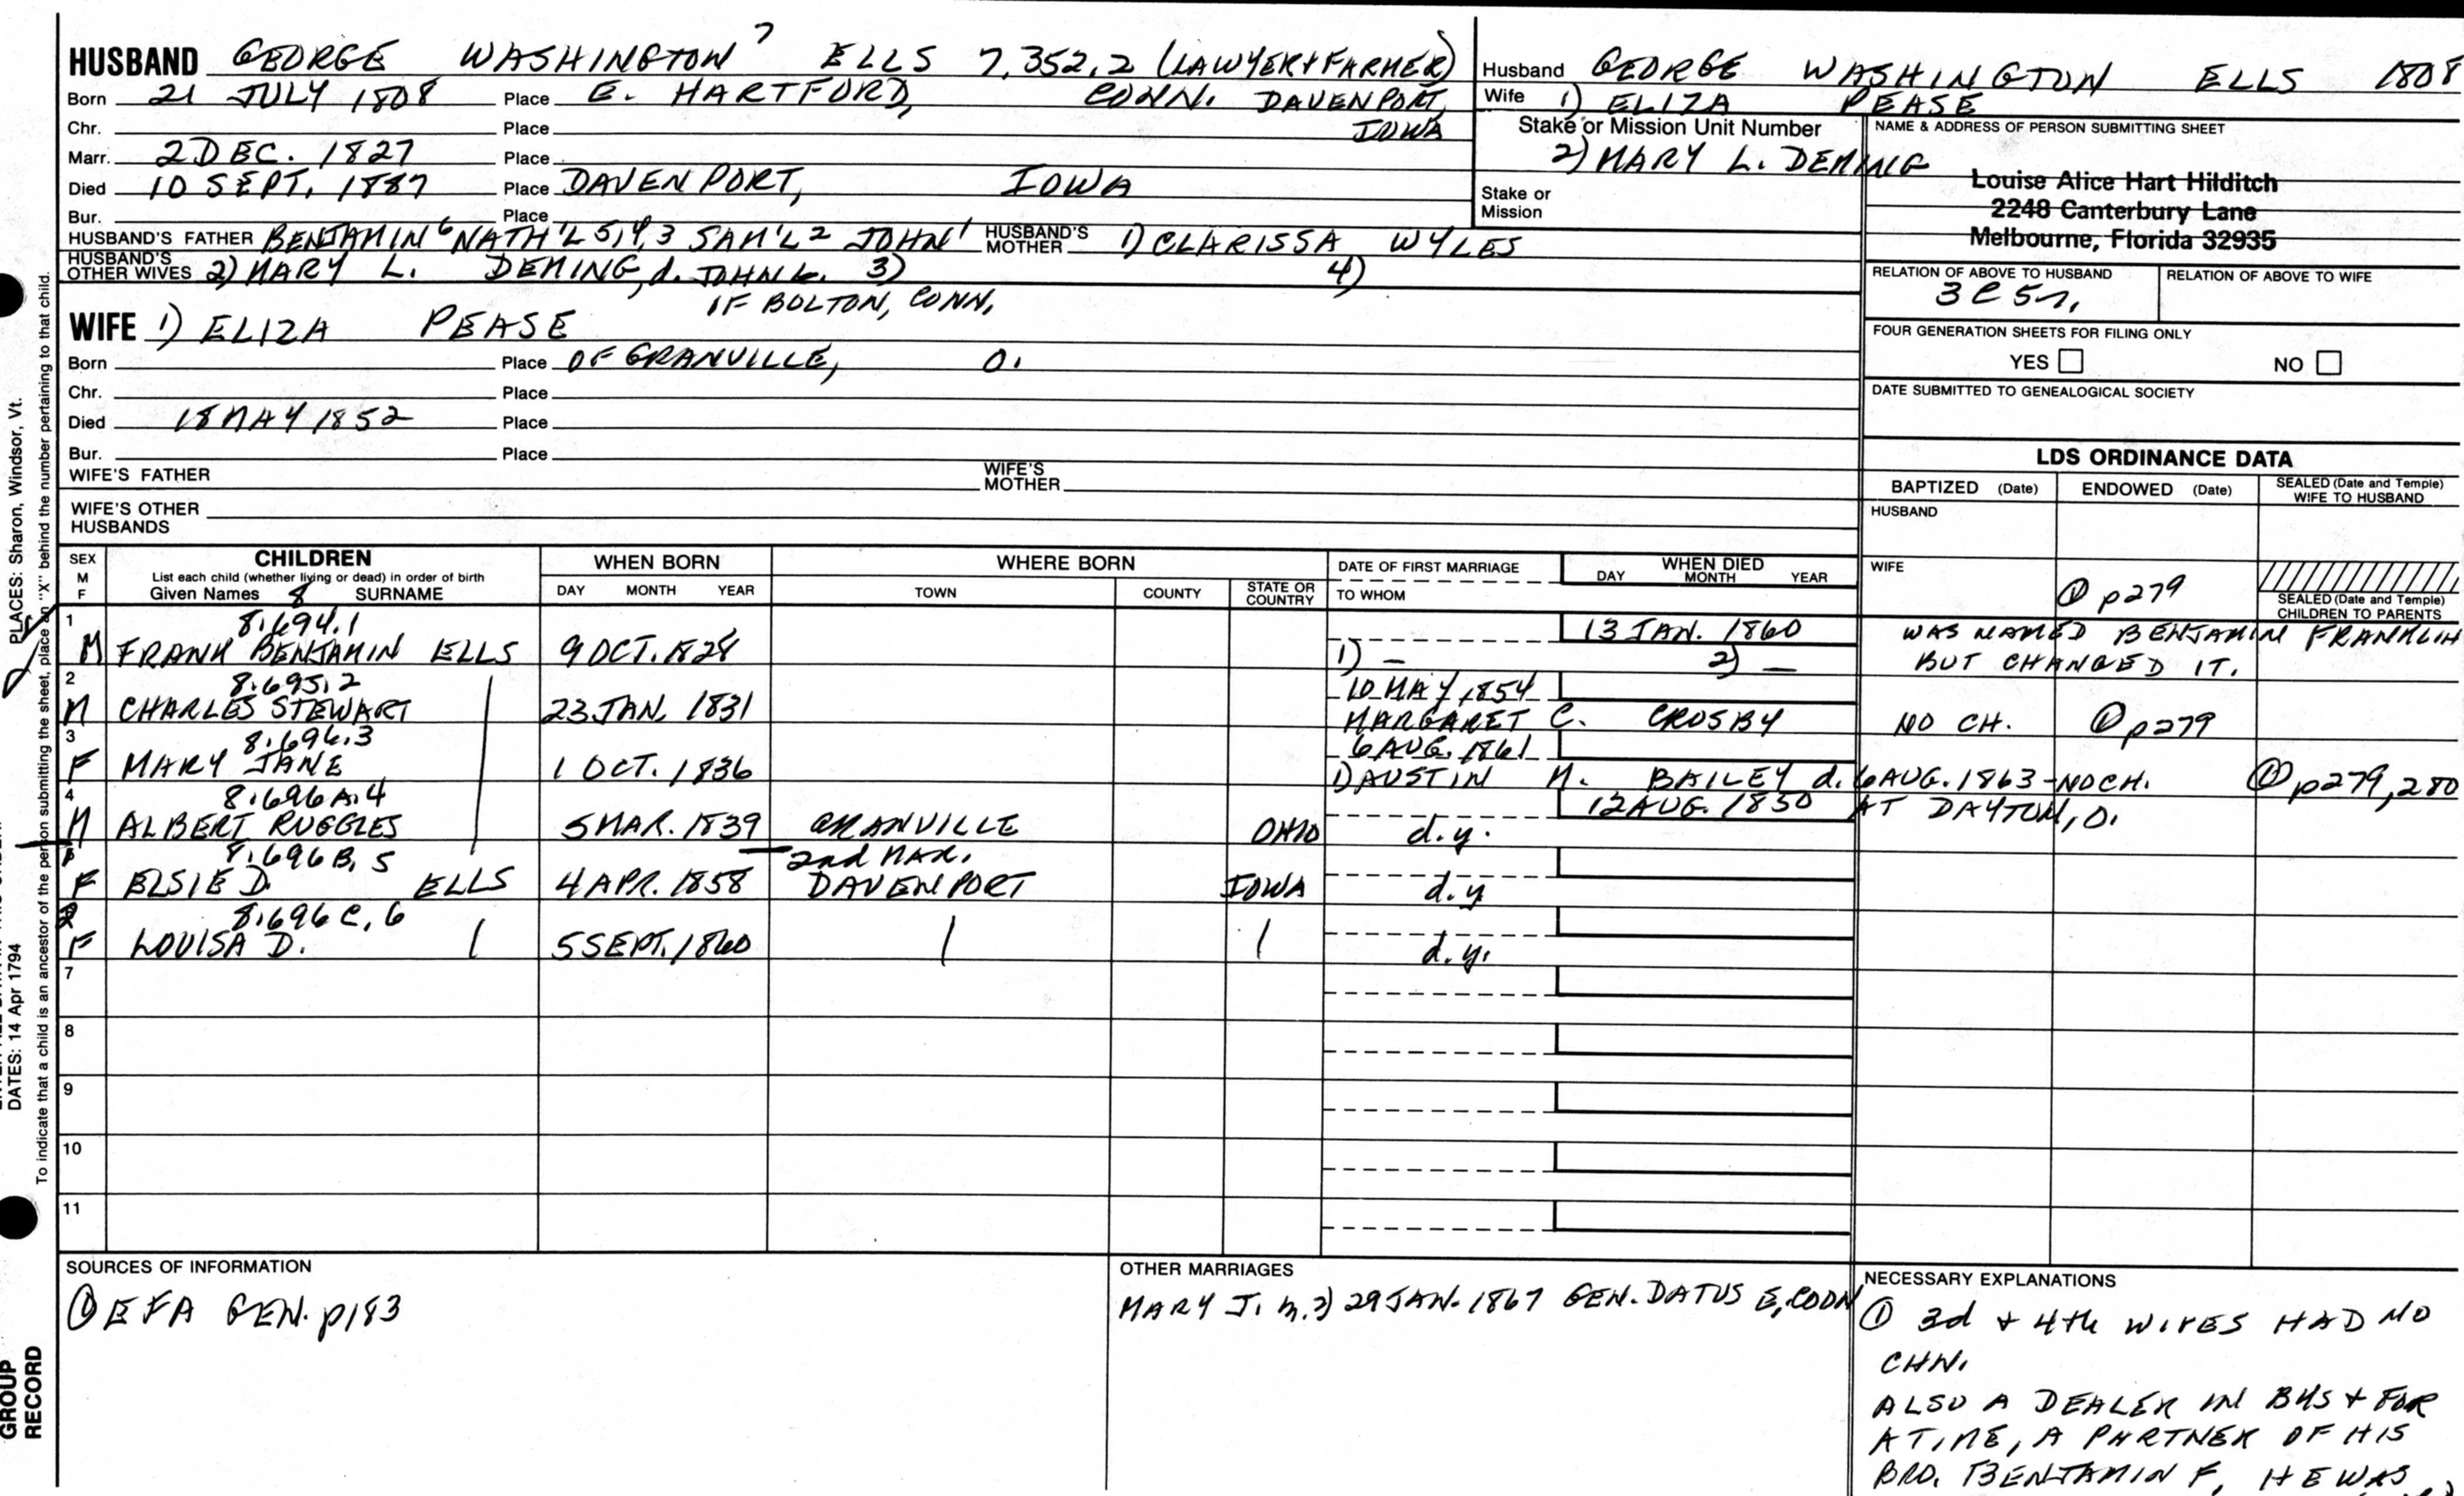 HUSBAND GEORGE WASHINGTON 7 ELLS 7,352,2 (LAWYER+FARMER)
Born 21 JULY 1808 Place E. HARTFORD, CONN. DAVENPORT,
Chr. Place IOWA
Marr. 2 DEC. 1827 Place
Died 10 SEPT. 1887 Place DAVENPORT, IOWA
Bur. Place
HUSBAND'S FATHER BENJAMIN 6 NATH'L 5,4,3 SAM'L 2 JOHN 1 HUSBAND'S MOTHER 1) CLARISSA WYLES
HUSBAND'S OTHER WIVES 2) MARY L. DEMING, d. JOHN L. 3) 4)
OF BOLTON, CONN.
WIFE 1) ELIZA PEASE
Born Place OF GRANVILLE, O.
Chr. Place
Died 18 MAY 1852 Place
Bur. Place
WIFE'S FATHER WIFE'S MOTHER
WIFE'S OTHER HUSBANDS
Husband GEORGE WASHINGTON ELLS 1808
Wife 1) ELIZA PEASE
Stake or Mission Unit Number
2) MARY L. DEMING
Stake or Mission
NAME & ADDRESS OF PERSON SUBMITTING SHEET
Louise Alice Hart Hilditch
2248 Canterbury Lane
Melbourne, Florida 32935
RELATION OF ABOVE TO HUSBAND RELATION OF ABOVE TO WIFE
3 C 5 r,
FOUR GENERATION SHEETS FOR FILING ONLY
YES NO
DATE SUBMITTED TO GENEALOGICAL SOCIETY
LDS ORDINANCE DATA
BAPTIZED (Date) ENDOWED (Date) SEALED (Date and Temple) WIFE TO HUSBAND
HUSBAND
WIFE ① p279
SEALED (Date and Temple) CHILDREN TO PARENTS
SEX M F CHILDREN WHEN BORN WHERE BORN DATE OF FIRST MARRIAGE WHEN DIED
List each child (whether living or dead) in order of birth
Given Names 8 SURNAME DAY MONTH YEAR TOWN COUNTY STATE OR COUNTRY TO WHOM DAY MONTH YEAR
1 8,694.1 13 JAN. 1860 WAS NAMED BENJAMIN FRANKLIN
M FRANK BENJAMIN ELLS 9 OCT. 1828 1) – 2) – BUT CHANGED IT.
2 8,695,2 10 MAY 1854
M CHARLES STEWART 23 JAN. 1831 MARGARET C. CROSBY NO CH. ① p279
3 8,696.3 6 AUG. 1861
F MARY JANE 1 OCT. 1836 1) AUSTIN M. BAILEY d. 6 AUG. 1863 - NO CH. ① p279, 280
4 8,696A,4 12 AUG. 1850 AT DAYTON, O.
M ALBERT RUGGLES 5 MAR. 1839 GRANVILLE OHIO d.y.
8,696B,5 2nd MAR.
F ELSIE D. ELLS 4 APR. 1858 DAVENPORT IOWA d.y
2 8,696C,6
F LOUISA D. 5 SEPT. 1860 d.y.
7
8
9
10
11
SOURCES OF INFORMATION
① EFA GEN. p183
OTHER MARRIAGES
MARY J. m. 2) 29 JAN. 1867 GEN. DATUS E. COON
NECESSARY EXPLANATIONS
① 3d + 4th WIVES HAD NO
CHN.
ALSO A DEALER IN B4S + FOR
A TIME, A PARTNER OF HIS
BRO. BENJAMIN F. HE WAS
PLACES: Sharon, Windsor, Vt.
DATES: 14 Apr 1794
To indicate that a child is an ancestor of the person submitting the sheet, place an "X" behind the number pertaining to that child.
GROUP
RECORD